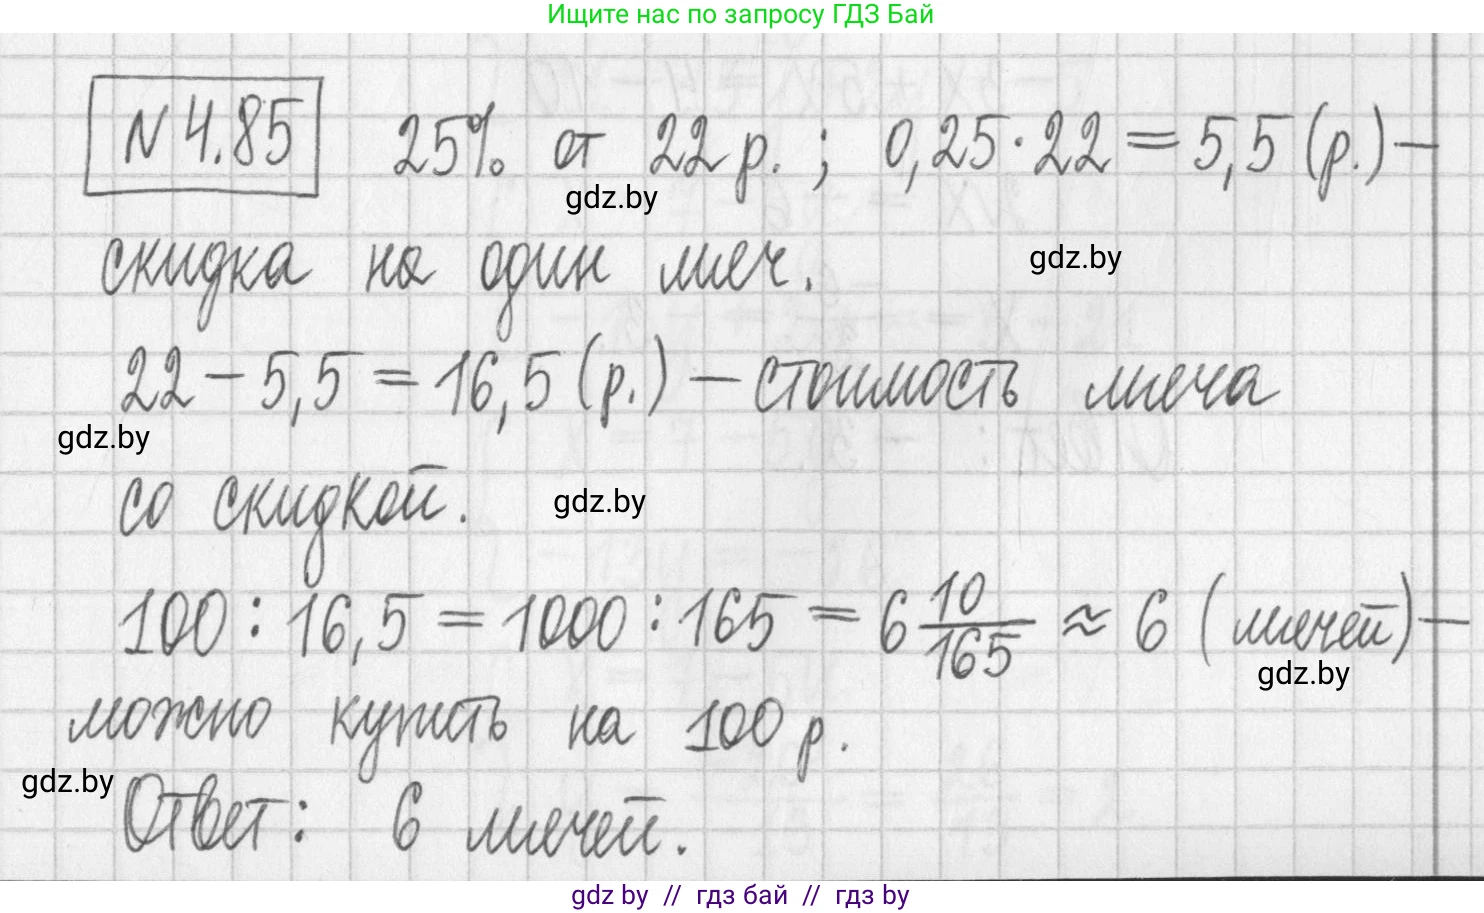 Ищите нас по запросу ГДЗ Бай
N 4.85 25% от 22 р. ; 0,25 · 22 = 5,5 (р.) —
gdz.by
скидка на один меч.
gdz.by
22 − 5,5 = 16,5 (р.) — стоимость меча
gdz.by
со скидкой.
gdz.by
100 : 16,5 = 1000 : 165 = 6 10/165 ≈ 6 (мечей) —
gdz.by
можно купить на 100 р.
gdz.by
Ответ: 6 мечей.
gdz by // гдз бай // гдз by